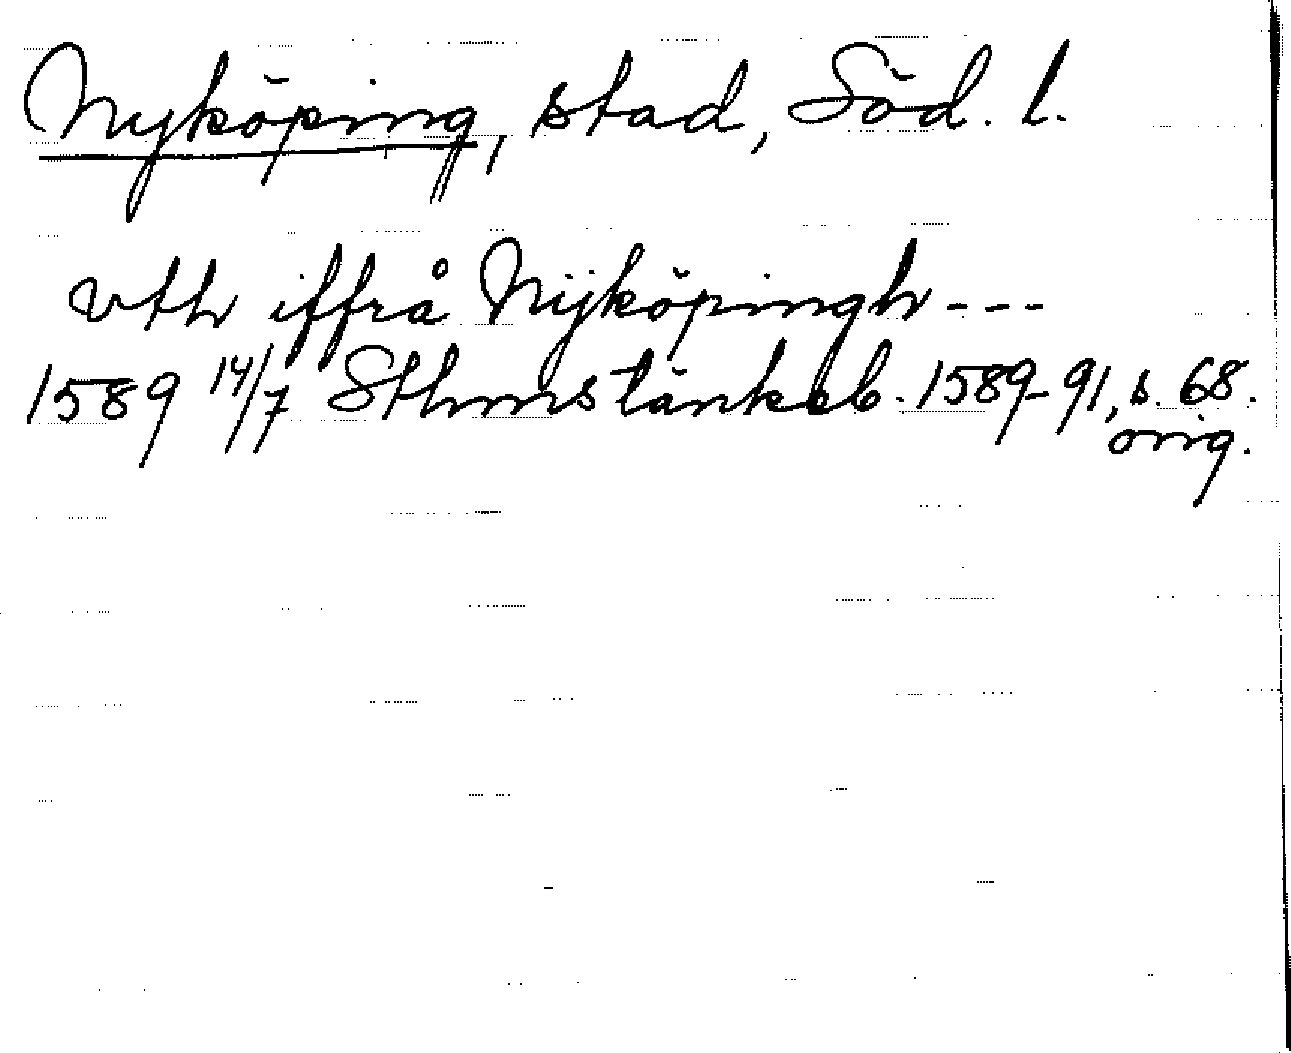 Nyköping, stad, Söd. l.
vth iffrå Nijköpingh ---
1589 14/7 Sthmstänkeb. 1589-91, s. 68.
orig.